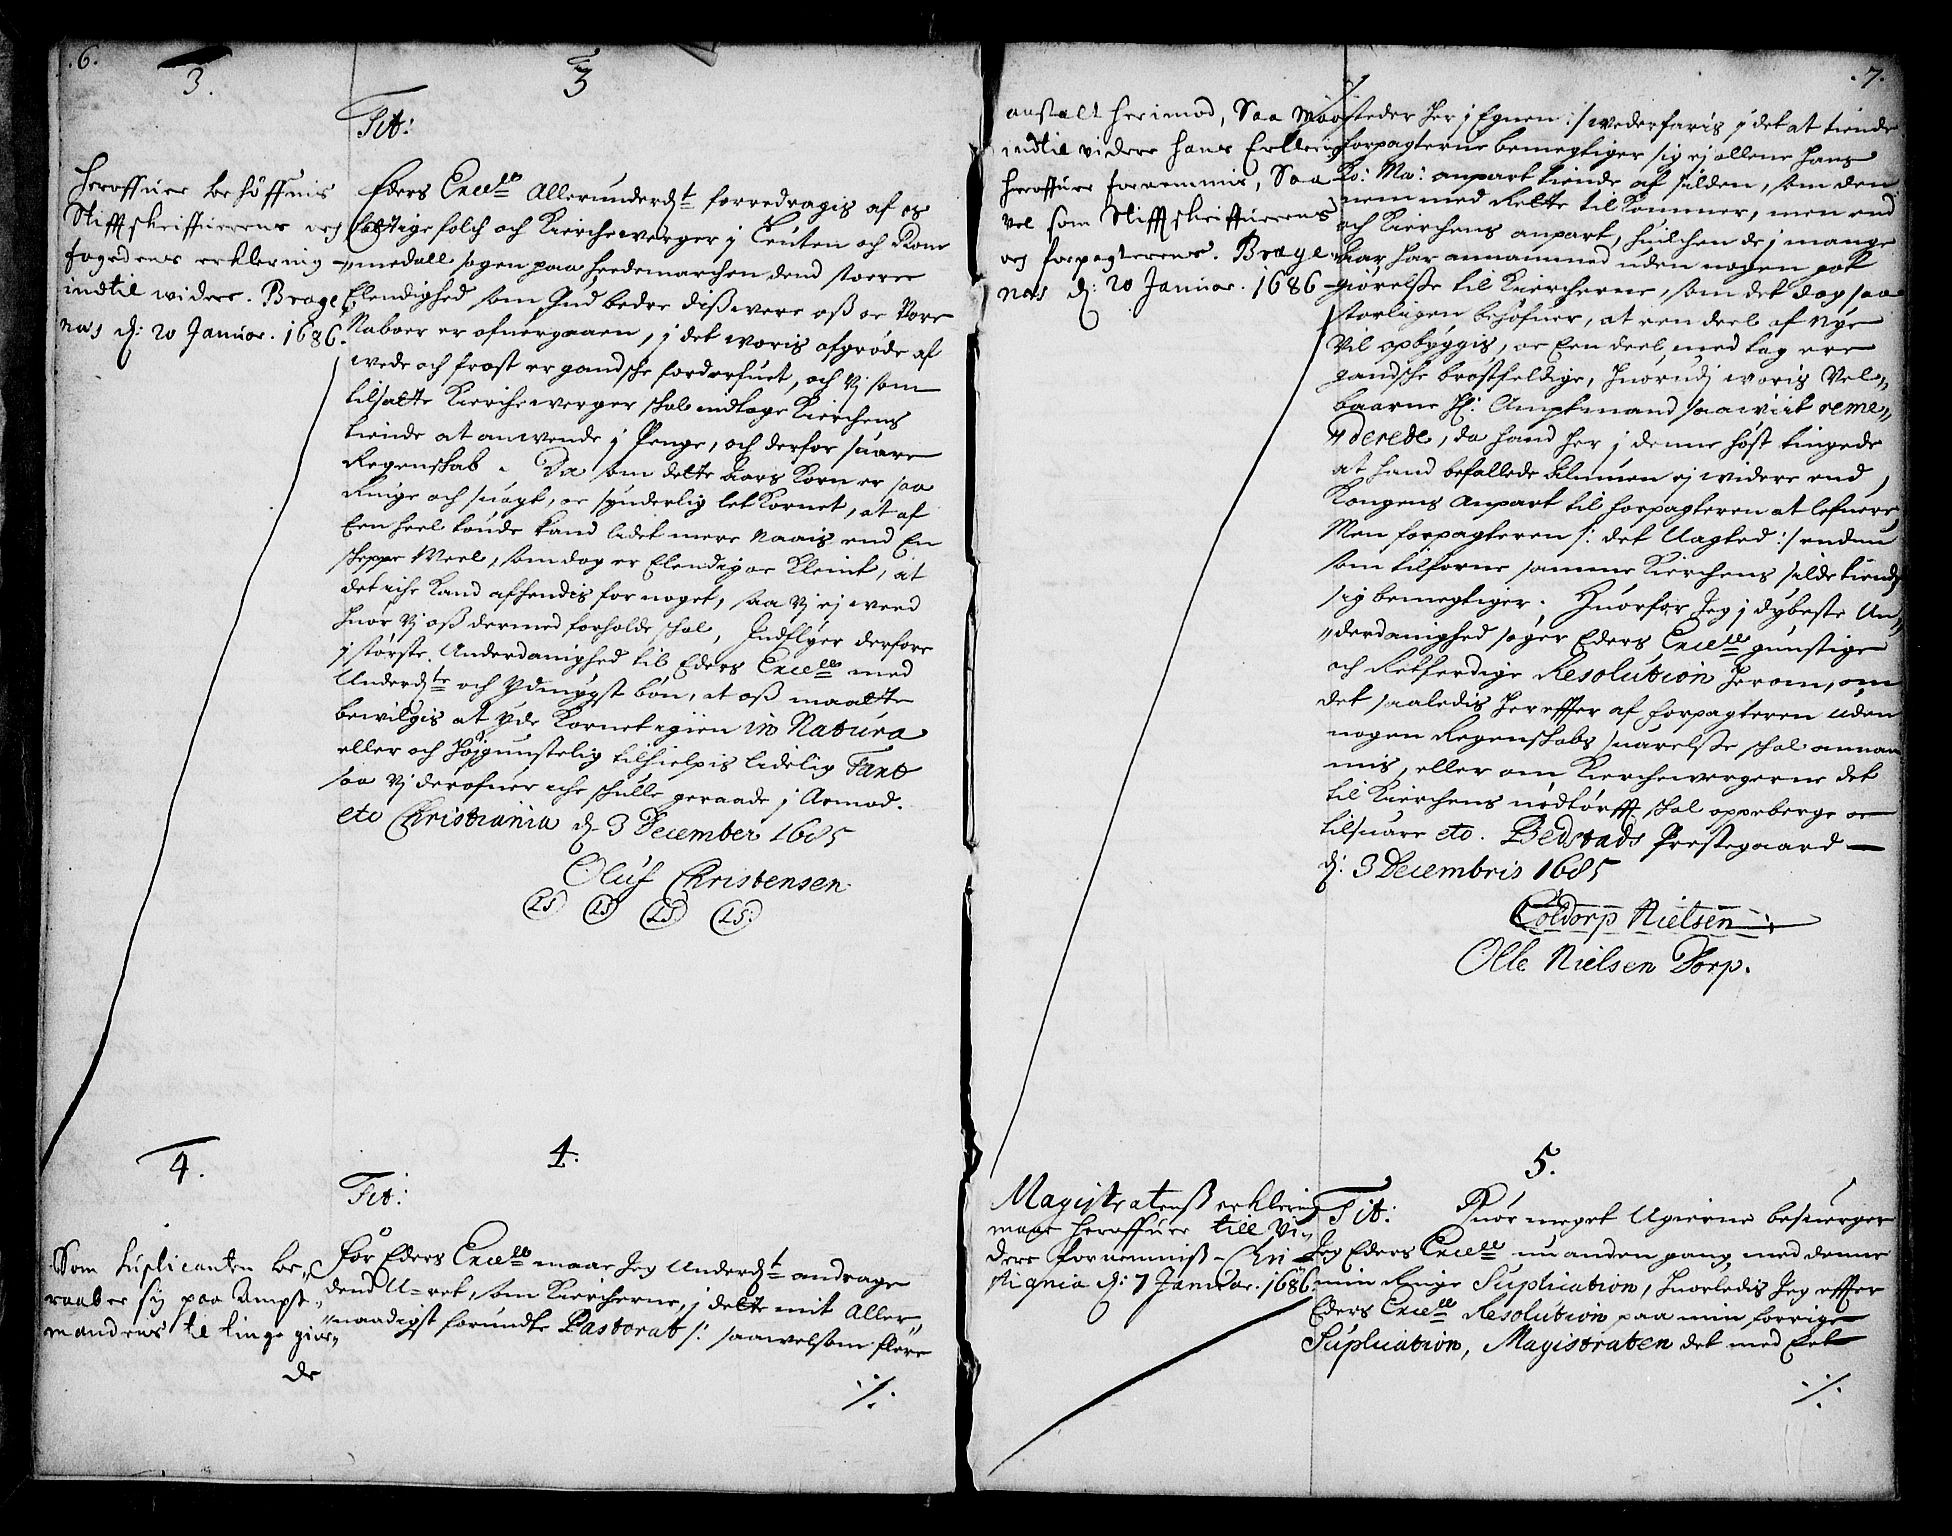 .6.
3.
3
Tit:
Heroffuer behøffuis
Stifftskriffuerens och
fogedens erklering
indtil widere. Brage
næs d: 20 Januar. 1686.
Eders Excell. Allerunderd.t forredragis af os
fattige folch och Kierchewerger j Leuten och Rom
medall sogen paa Hedemarchen dend stoere
Elendighed som Gud bedre dessvere oss oc Vore
Naboer er ofuergaaen, j det woris afgrøde af
wede och frost er gandsche forderfuet, och Vj som
tilsatte Kierchewerger skal indtage Kierchens
tiende at anwende j Penge, och derfor suare
Regenskab. Da som dette Aars Korn er saa
Ringe och suagt, oc synderlig let Kornet, at af
Een heel tønde kand lidet mere Maais end En
skeppe Meel, som dog er Elendig oc Kleint, at
det iche Kand afhendis for noget, saa Vj ej weed
huor Vj oss dermed forholde skal, Indflyer derfore
j største Underdanighed til Eders Excell. med
Underd.te och Ydmygst bøn, at oss maatte
bewilgis at Yde Kornet igien in Natura
eller och Højgunstelig tilhielpis lidelig Taxt
saa Vj derofuer iche skulle geraade j Armod.
etc Christiania d. 3 December 1685
Oluf Christensen
LS LS LS LS
4.
4.
Tit:
Som Suplicanten be„
raaber sig paa Ampt„
mandens til tinge gior„
de
For Eders Excell. maae Jeg Underd.t andrage
dend U=ret, som Kiercherne, j dette mit Aller„
naadigst forundte Pastorat /: saawelsom flere
./.
.7.
anstalt herimod, Saa maae
indtil videre hans Erklering
heroffuer fornemmis, Saa
vel som Stifftskriffuerens
og forpagterens. Brage„
næs d: 20 Januar. 1686
steder her j Egnen :/ wederfaris j det at tiende
forpagterne bemegtiger sig ej allene hans
Ko: Ma: anpart tiende af silden, som den
nem med Rette tilkommer, men end
och Kierchens anpart, huilchen de j mange
Aar har annammed uden nogen rede
giørelsse til Kiercherne, som det dog saa
storligen behøfuer, at een deel af Nye
Vil opbyggis, oc Een deel med tag ere
gandsche brøstfeldige, huorudj woris Vel„
baarne Hr: Amptmand saawit reme„
„derede, da hand her j denne høst tingede
at hand befallede Almuen ej widere end
Kongens Anpart til forpagteren at lefuere
Men forpagteren /: det Uagted :/ endnu
som tilforne samme Kierchens sildetiende
sig bemegtiger. Huorfor Jeg j dybeste Un„
„derdanighed søger Eders Excell. gunstige
och Retferdige Resolution herom, om
det saaledis hereffter af forpagteren uden
nogen Regenskabs suarelsse skal annam
mis, eller om Kierchewergerne det
til Kierchens nødtørfft skal oppeberge oc
tilsuare etc. Bedstads Prestegaard
d: 3 Decembris 1685
Coldorp Nielsen
Olle Nielsen Dorp.
5.
Magistratenss erklering
maae heroffuer till Vi„
dere fornemmiss. Chri
stiania d: 7 Januar. 1686.
Tit: Huor meget Ugierne besuerger
Jeg Eders Excell. nu anden gang, med denne
min Ringe Suplication, huorledis Jeg effter
Eders Excell. Resolution paa min forrige
Suplication, Magistraten det med Eet
./.